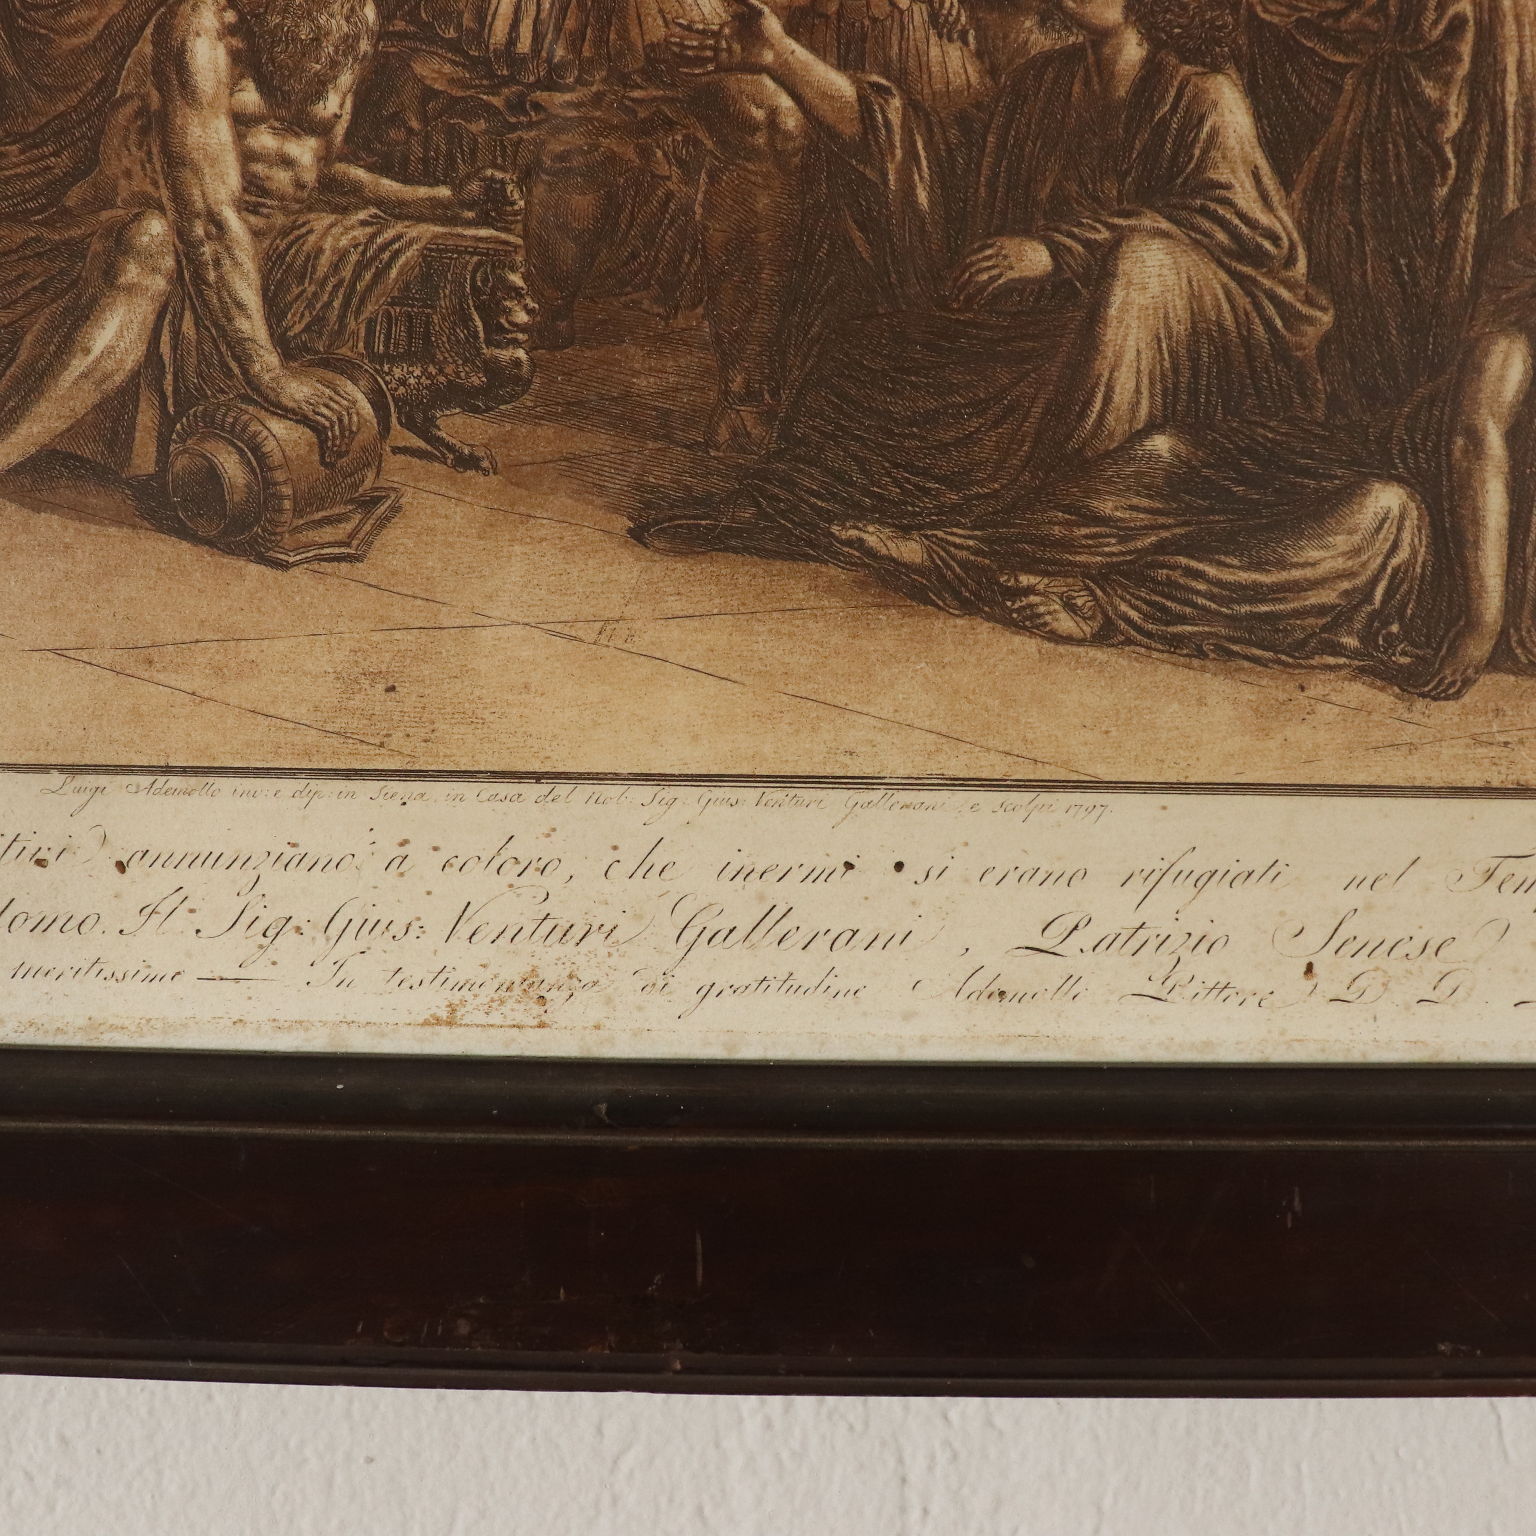 Luigi Ademollo inv: e dip: in Siena in Casa del Nob: Sig: Gius: Venturi Gallerani, e scolpi 1797.
annunziano a coloro, che inermi si erano rifugiati nel Tem
domo. Il Sig: Gius: Venturi Gallerani, Patrizio Senese
meritissimo — In testimonianza di gratitudine Ademollo Pittore D. D.